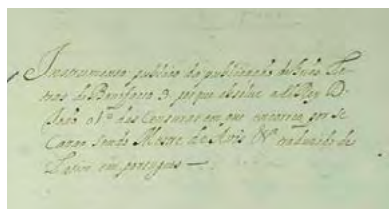 Instromento publico da publicação de huãs Le-
tras de Bonifacio 9. porque absolue a el Rey D.
João o 1º das Censuras em que encorreo por se
Cazar sendo Mestre de Avis &ª traduzido de
Latim em portugues —